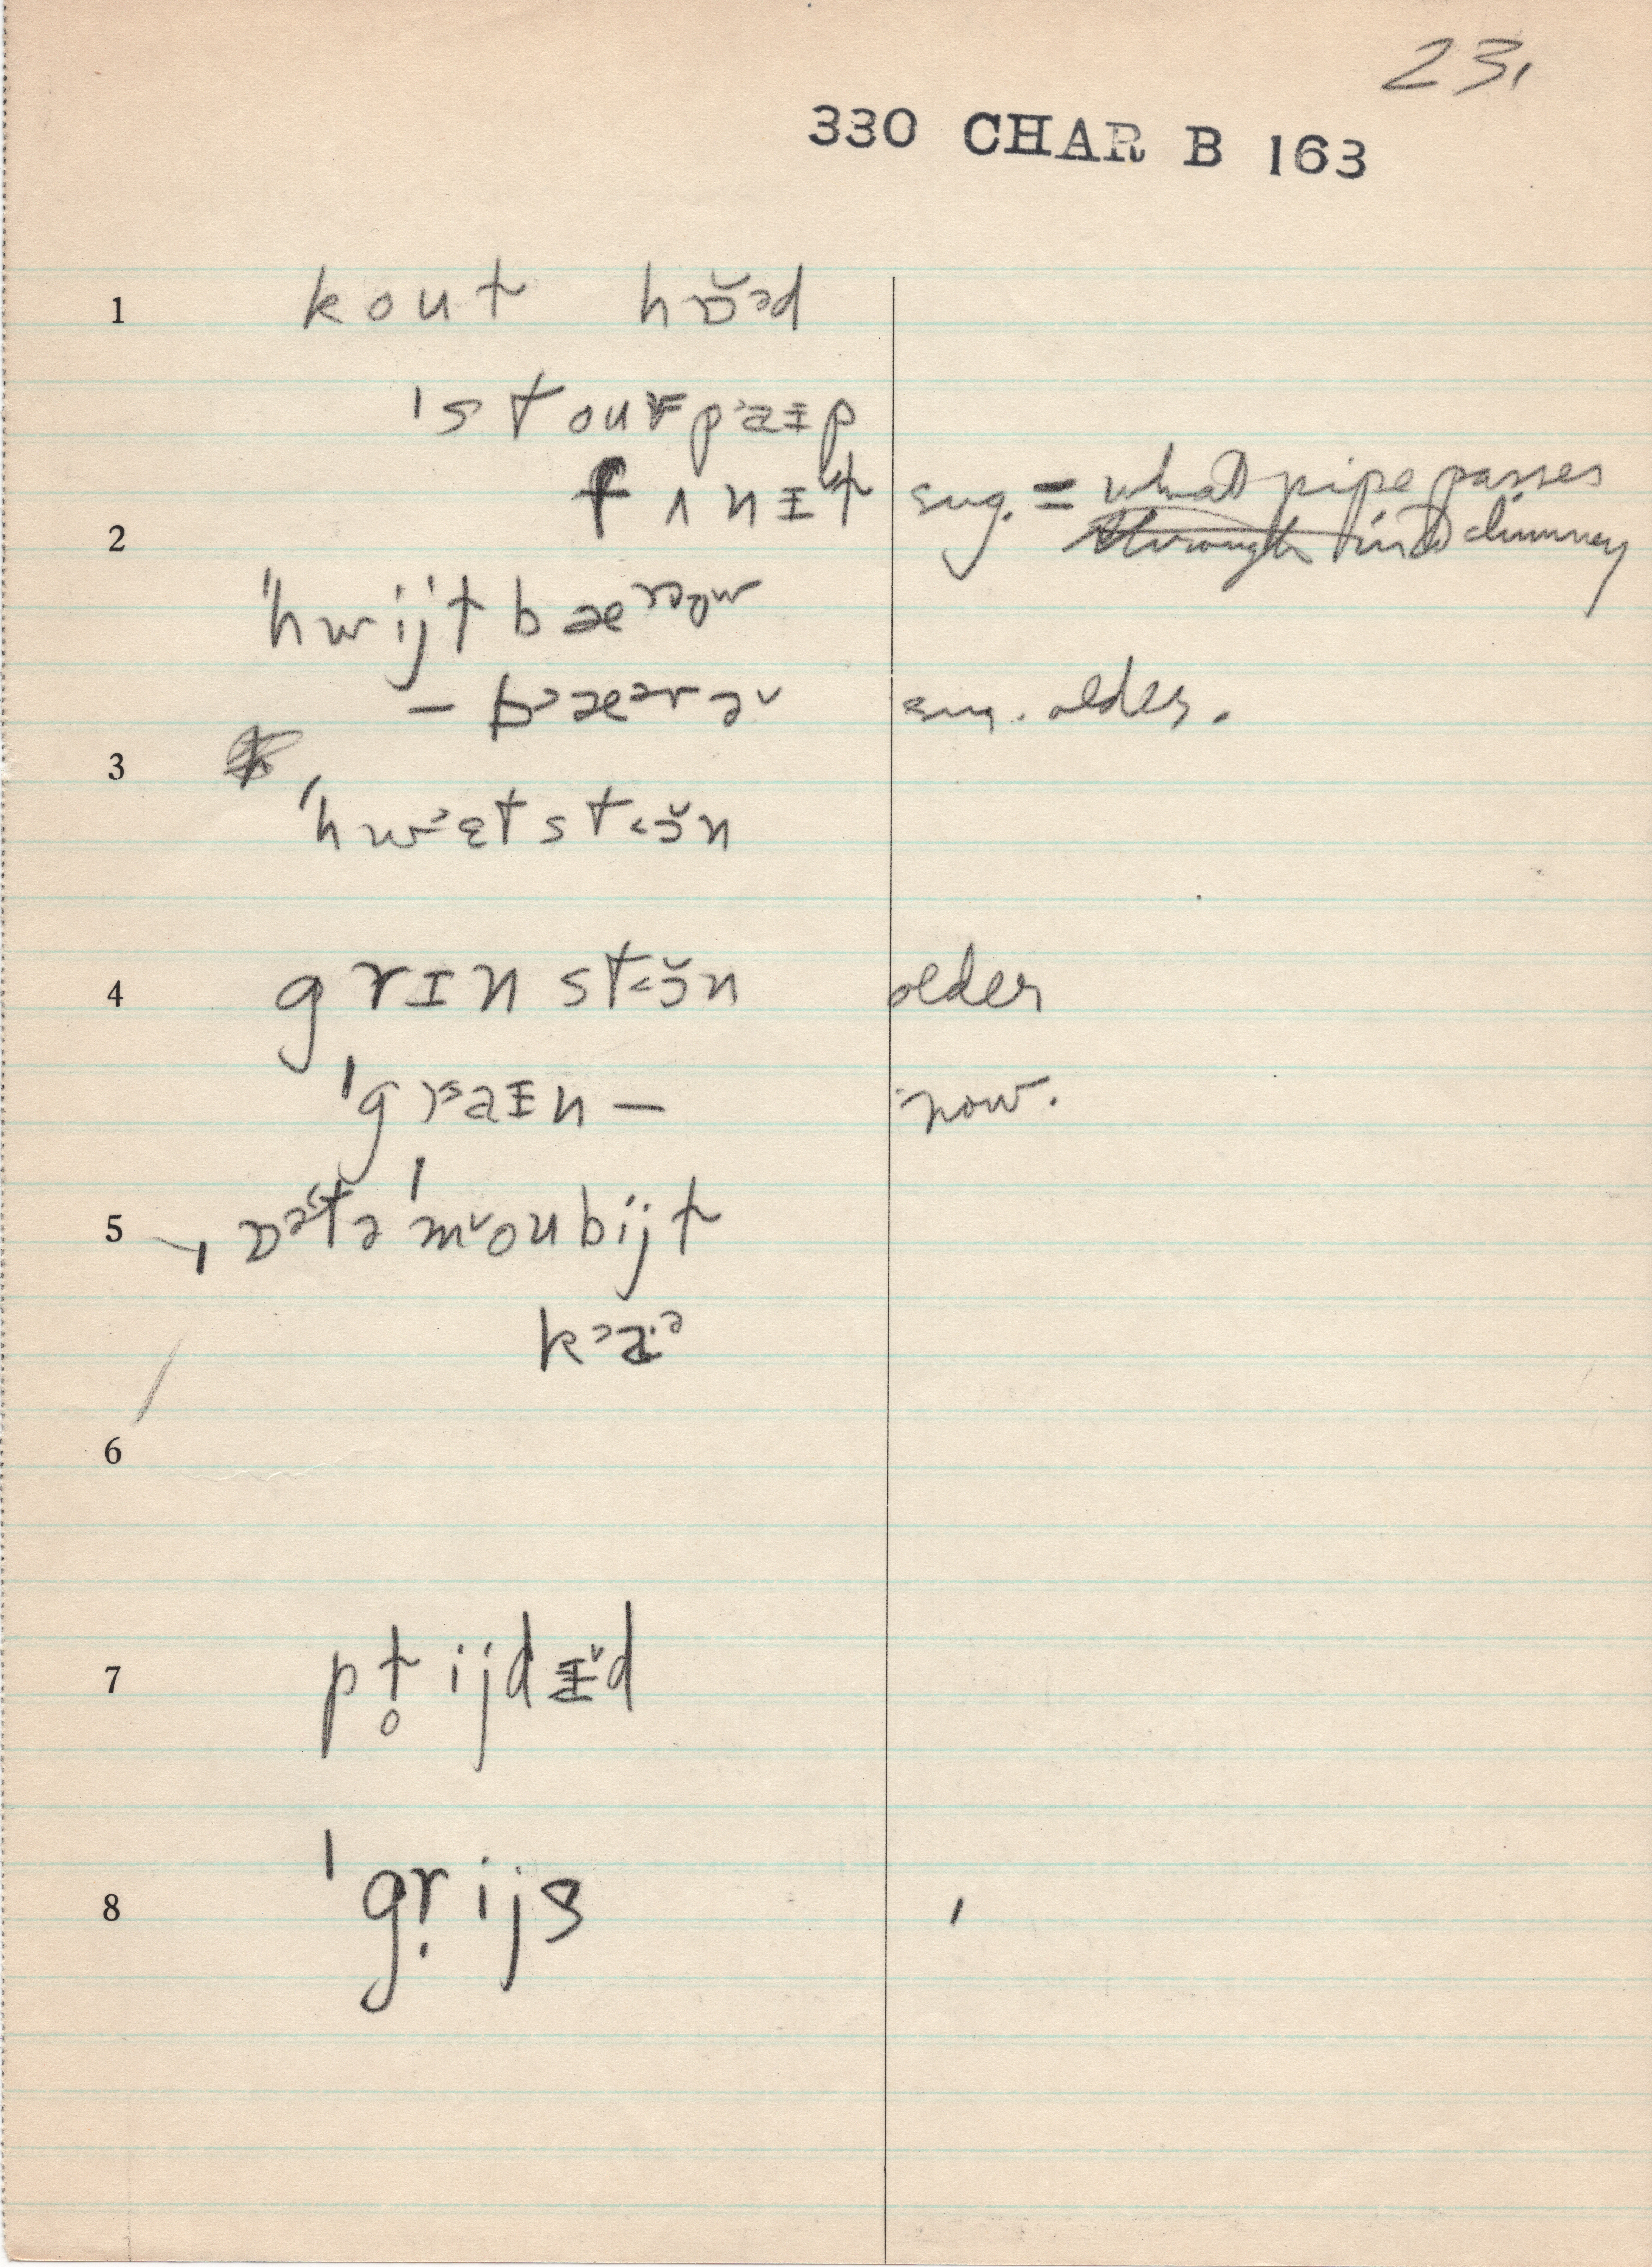 23,
330 CHAR B 163
1 kout hɒ̆ᵊd
ˈstourpᵊaɪp
fʌnɪɫ sug. = what pipe passes
2 through into chimney
ˈhwijtbæʳᵊoʷ
– bᵊæᵊrəᵛ sug. older.
3
ˈhwᵊɛtst˂ɔ̆n
4 grɪnst˂ɔ̆n older
ˈgrᵊaɪn – now.
5 ˌɒᵊtəˈmᵛoubijt
kᵊaᵊ
6
7 pt̥ijdɪᵛd
8 ˈgṛijs